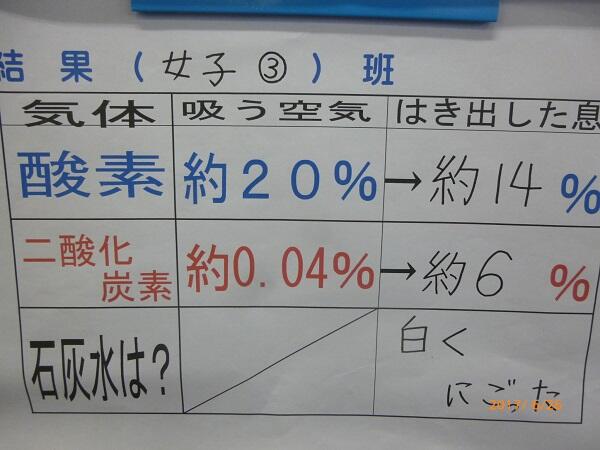 結 果 （ 女子 ③ ） 班
気体 吸う空気 はき出した息
酸素 約２０％ → 約14 ％
二酸化
炭素 約0.04％ → 約6 ％
石灰水は？ 白く
にごった
2017/ 6/26